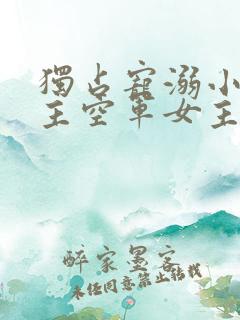 獨占寵溺小
主空軍女主
醉家墨客
未经同意禁止转载